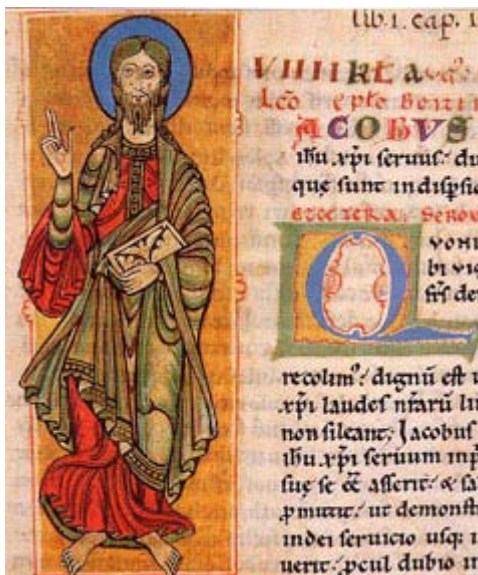 lib. i. cap. i
VIIII KL A
Lcō eptē
IACOBVS
ihu xp̄i seruus; du
quę sunt in dispsiō
SEROO
QVONI
bi vig
fr̄s de
recolim⁹; dignū est u
xp̄i laudes nr̄arū lin
non sileant; Jacobus
ihu xp̄i seruum inp
suę se eē asserit; & sa
ꝓmittit; ut demonstr
in dei seruicio usq; i
uerit; ꝓcul dubio in